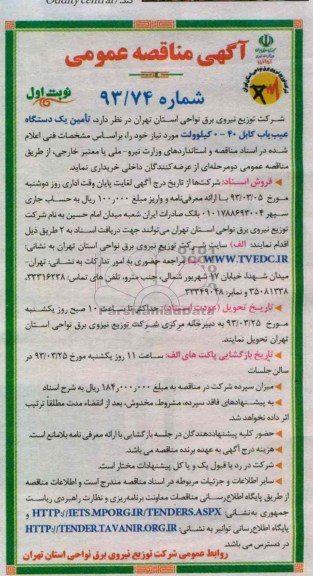 آگهی مناقصه عمومی
شماره ۹۳/۷۴
نوبت اول
شرکت توزیع نیروی برق نواحی استان تهران در نظر دارد، تأمین یک دستگاه
عیب‌یاب کابل ۴۰ - ۰ کیلوولت مورد نیاز خود را، براساس مشخصات فنی اعلام
شده در اسناد مناقصه و استانداردهای وزارت نیرو- ملی یا معتبر خارجی، از طریق
مناقصه عمومی دومرحله‌ای از عرضه‌کنندگان داخلی خریداری نماید.
فروش اسناد: شرکت‌ها از تاریخ درج آگهی لغایت پایان وقت اداری روز دوشنبه
مورخ ۹۳/۰۳/۰۵ با ارائه معرفی‌نامه و واریز مبلغ ۱۰۰٫۰۰۰ ریال به حساب جاری
سپهر ۰۱۰۱۷۸۸۶۹۳۰۰۴ بانک صادرات ایران شعبه میدان امام حسین به نام شرکت
توزیع نیروی برق نواحی استان تهران می‌توانند جهت دریافت اسناد به ۲ طریق ذیل
اقدام نمایند: الف) سایت شرکت توزیع نیروی برق نواحی استان تهران به نشانی:
WWW.TVEDC.IR ب) مراجعه حضوری به امور تدارکات به نشانی: تهران-
میدان شهدا، خیابان ۱۷ شهریور شمالی، جنب مترو، تلفن های تماس: ۳۳۳۱۶۲۳۸،
۳۵۰۸۱۳۳۸ و نمابر: ۳۳۳۴۹۰۴۸
تاریخ تحویل (عودت اسناد): حداکثر تا ساعت ۱۰ صبح روز یکشنبه
مورخ ۹۳/۰۳/۲۵ به دبیرخانه مرکزی شرکت توزیع نیروی برق نواحی استان
تهران تحویل نمایند.
تاریخ بازگشایی پاکت های الف: ساعت ۱۱ روز یکشنبه مورخ ۹۳/۰۳/۲۵ در
سالن جلسات
میزان سپرده شرکت در مناقصه به مبلغ ۱۸۴٫۰۰۰٫۰۰۰ ریال به شرح اسناد
به پیشنهادهای فاقد سپرده، مشروط، مخدوش، بعد از انقضاء مدت مطلقاً ترتیب
اثر داده نخواهد شد.
حضور کلیه پیشنهاددهندگان در جلسه بازگشایی با ارائه معرفی نامه بلامانع است.
هزینه درج آگهی به عهده برنده مناقصه می باشد.
شرکت در رد یا قبول یک و یا کل پیشنهادات مختار است.
سایر اطلاعات و جزئیات مربوطه در اسناد مناقصه مندرج است و اطلاعات مناقصه
از طریق پایگاه اطلاع‌رسانی مناقصات معاونت برنامه‌ریزی و نظارت راهبردی ریاست
جمهوری به‌نشانی: HTTP://IETS.MPORG.IR/TENDERS.ASPX و
پایگاه اطلاع‌رسانی توانیر به‌نشانی: HTTP://TENDER.TAVANIR.ORG.IR
در دسترس می باشد.
روابط عمومی شرکت توزیع نیروی برق نواحی استان تهران